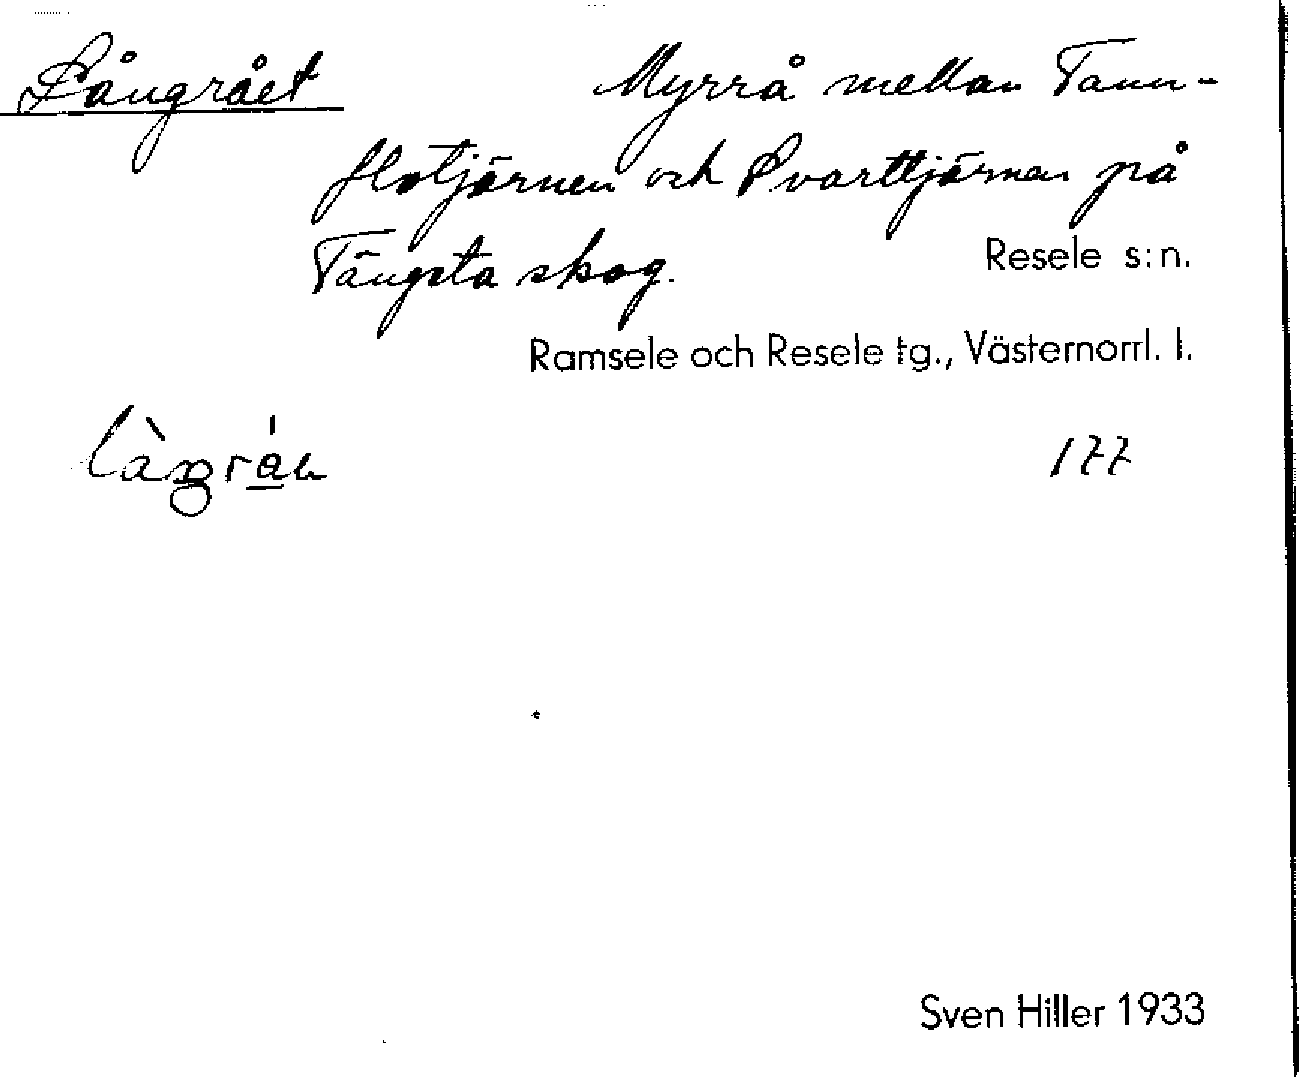 Långrået Myrrå mellan Tann-
flotjärnen och Svarttjärnen på
Tängsta skog. Resele s:n.
Ramsele och Resele tg., Västernorrl. l.
177
Sven Hiller 1933